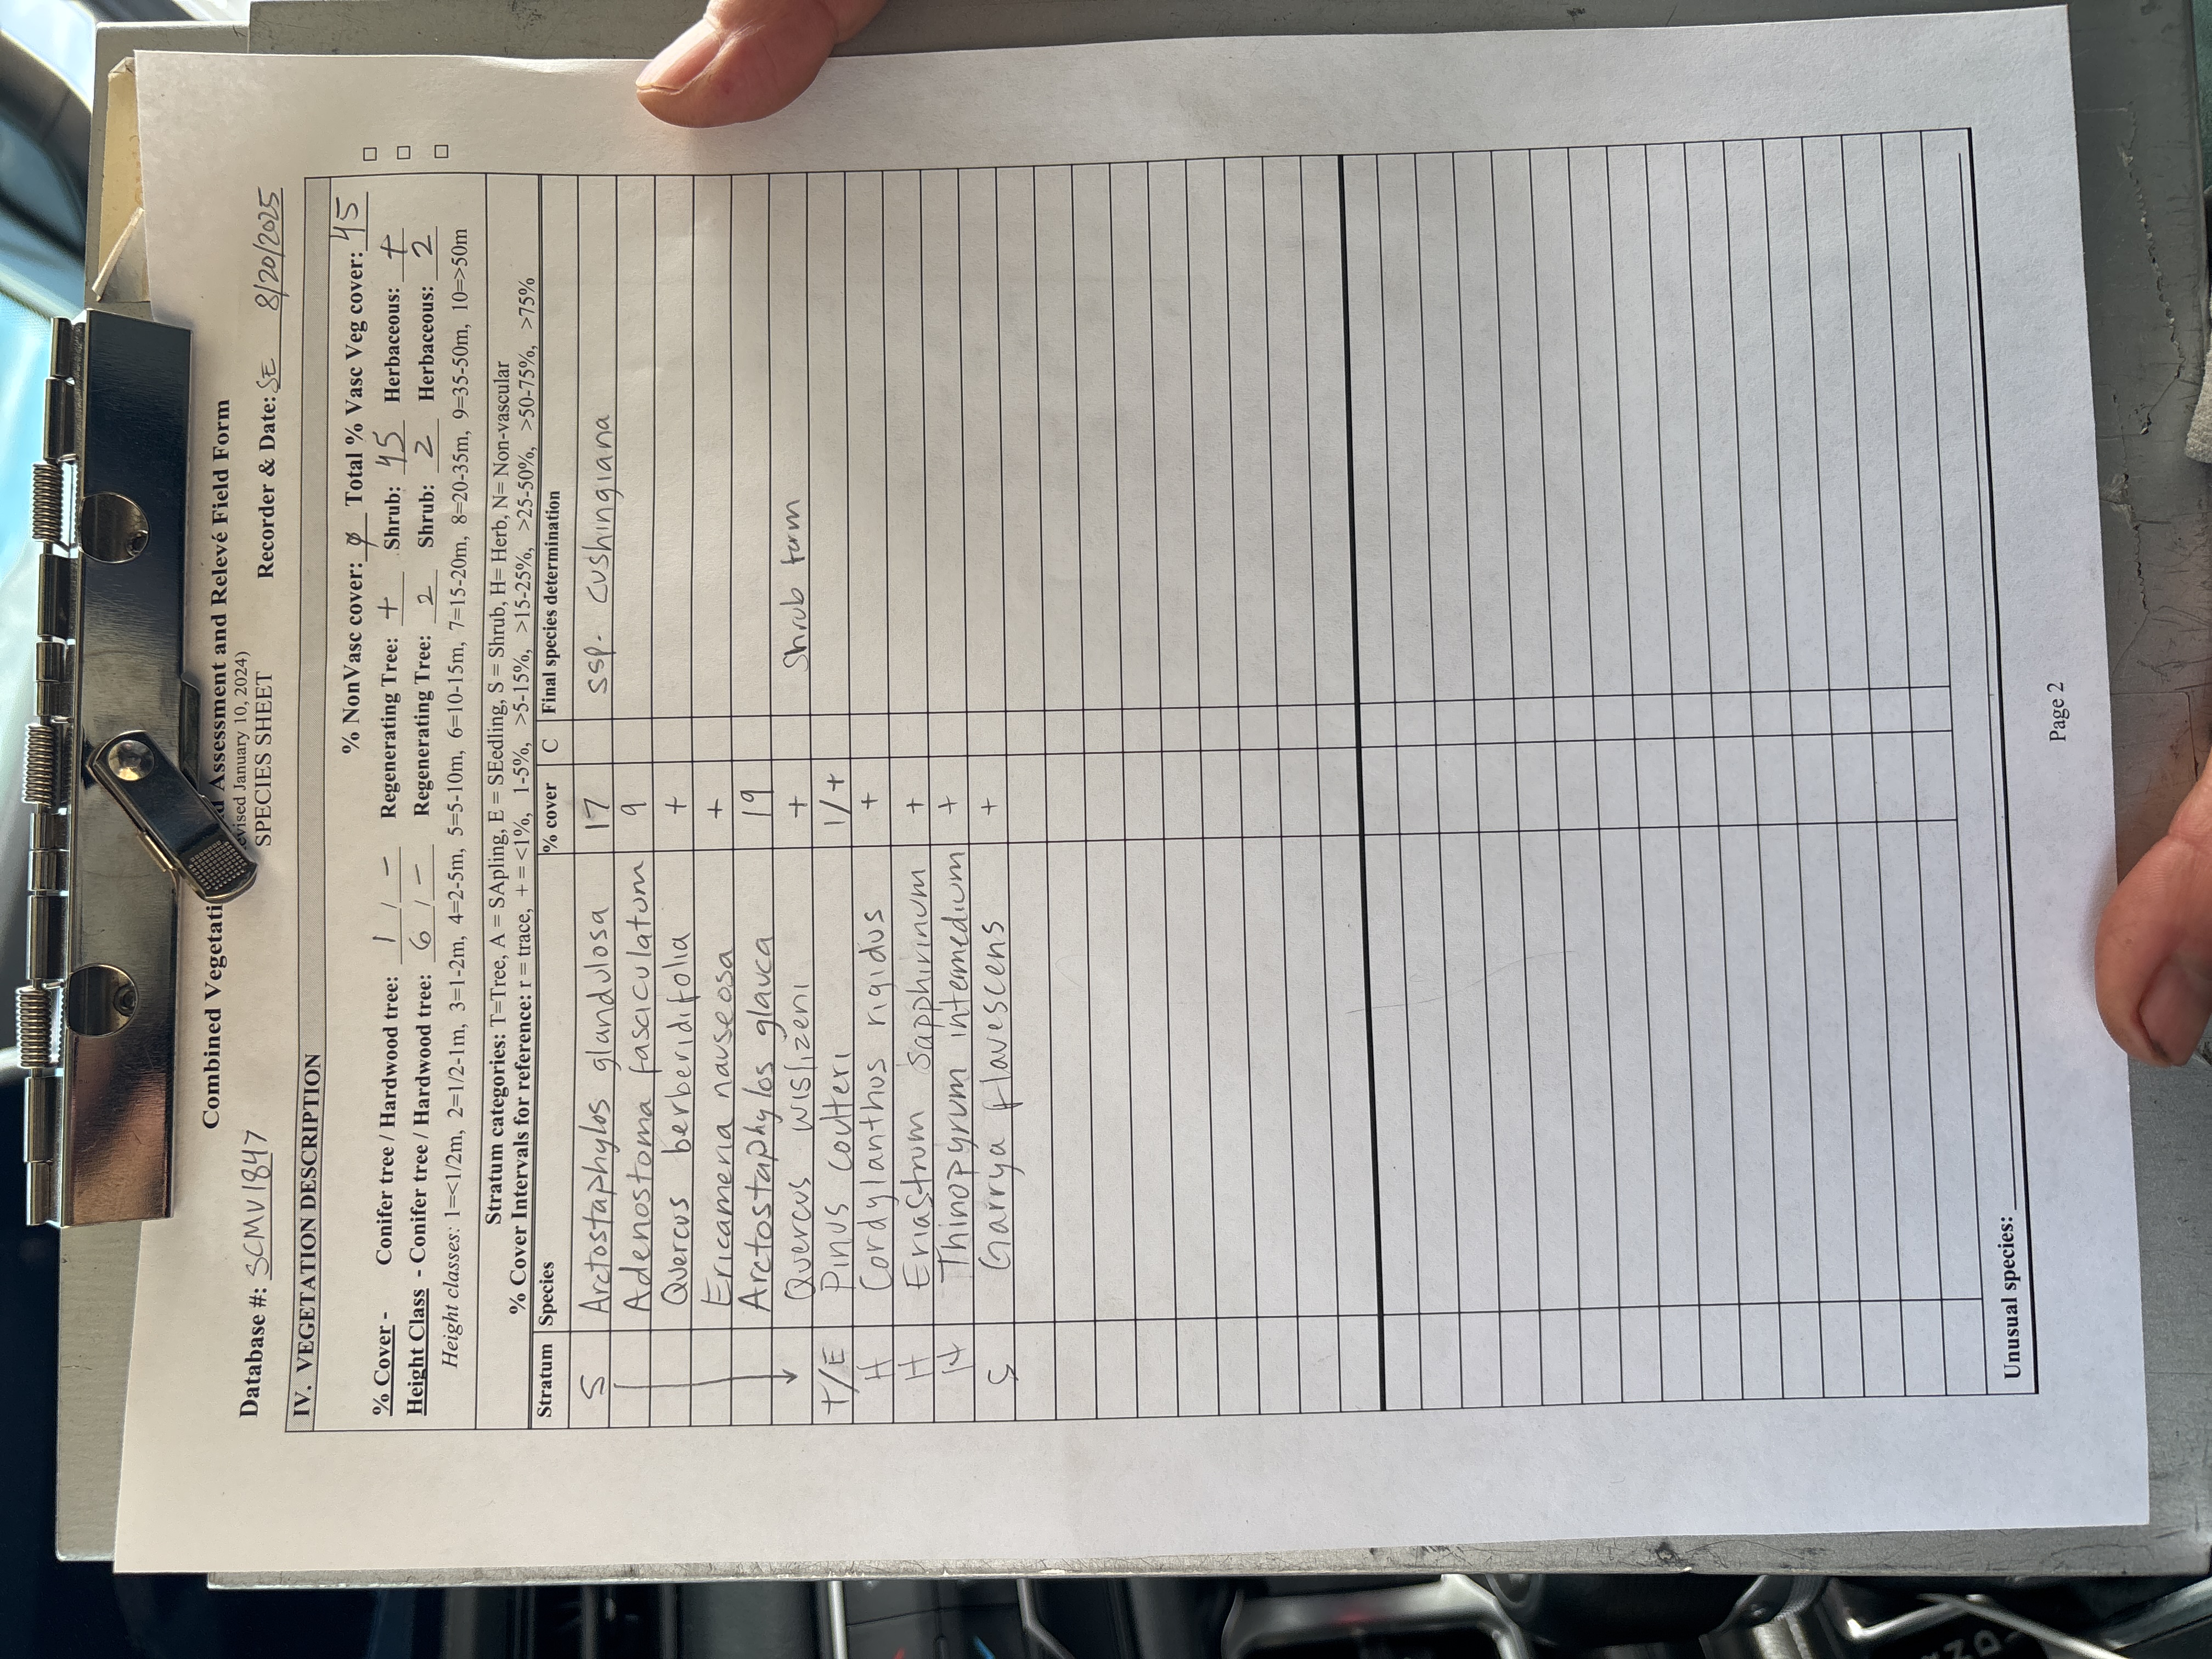 Combined Vegetati Assessment and Relevé Field Form
evised January 10, 2024)
SPECIES SHEET
Database #: SCMV1847 Recorder & Date: SE 8/20/2025
IV. VEGETATION DESCRIPTION
% NonVasc cover: ∅ Total % Vasc Veg cover: 45
% Cover - Conifer tree / Hardwood tree: 1 / - Regenerating Tree: + Shrub: 45 Herbaceous: + □
Height Class - Conifer tree / Hardwood tree: 6 / - Regenerating Tree: 2 Shrub: 2 Herbaceous: 2 □
Height classes: 1=<1/2m, 2=1/2-1m, 3=1-2m, 4=2-5m, 5=5-10m, 6=10-15m, 7=15-20m, 8=20-35m, 9=35-50m, 10=>50m
Stratum categories: T=Tree, A = SApling, E = SEedling, S = Shrub, H= Herb, N= Non-vascular
% Cover Intervals for reference: r = trace, + = <1%, 1-5%, >5-15%, >15-25%, >25-50%, >50-75%, >75%
Stratum Species % cover C Final species determination
S Arctostaphylos glandulosa 17 ssp. cushingiana
Adenostoma fasciculatum 9
Quercus berberidifolia +
Ericameria nauseosa +
Arctostaphylos glauca 19
Quercus wislizeni + Shrub form
T/E Pinus coulteri 1/+
H Cordylanthus rigidus +
H Eriastrum sapphirinum +
H Thinopyrum intermedium +
S Garrya flavescens +
Unusual species:
Page 2